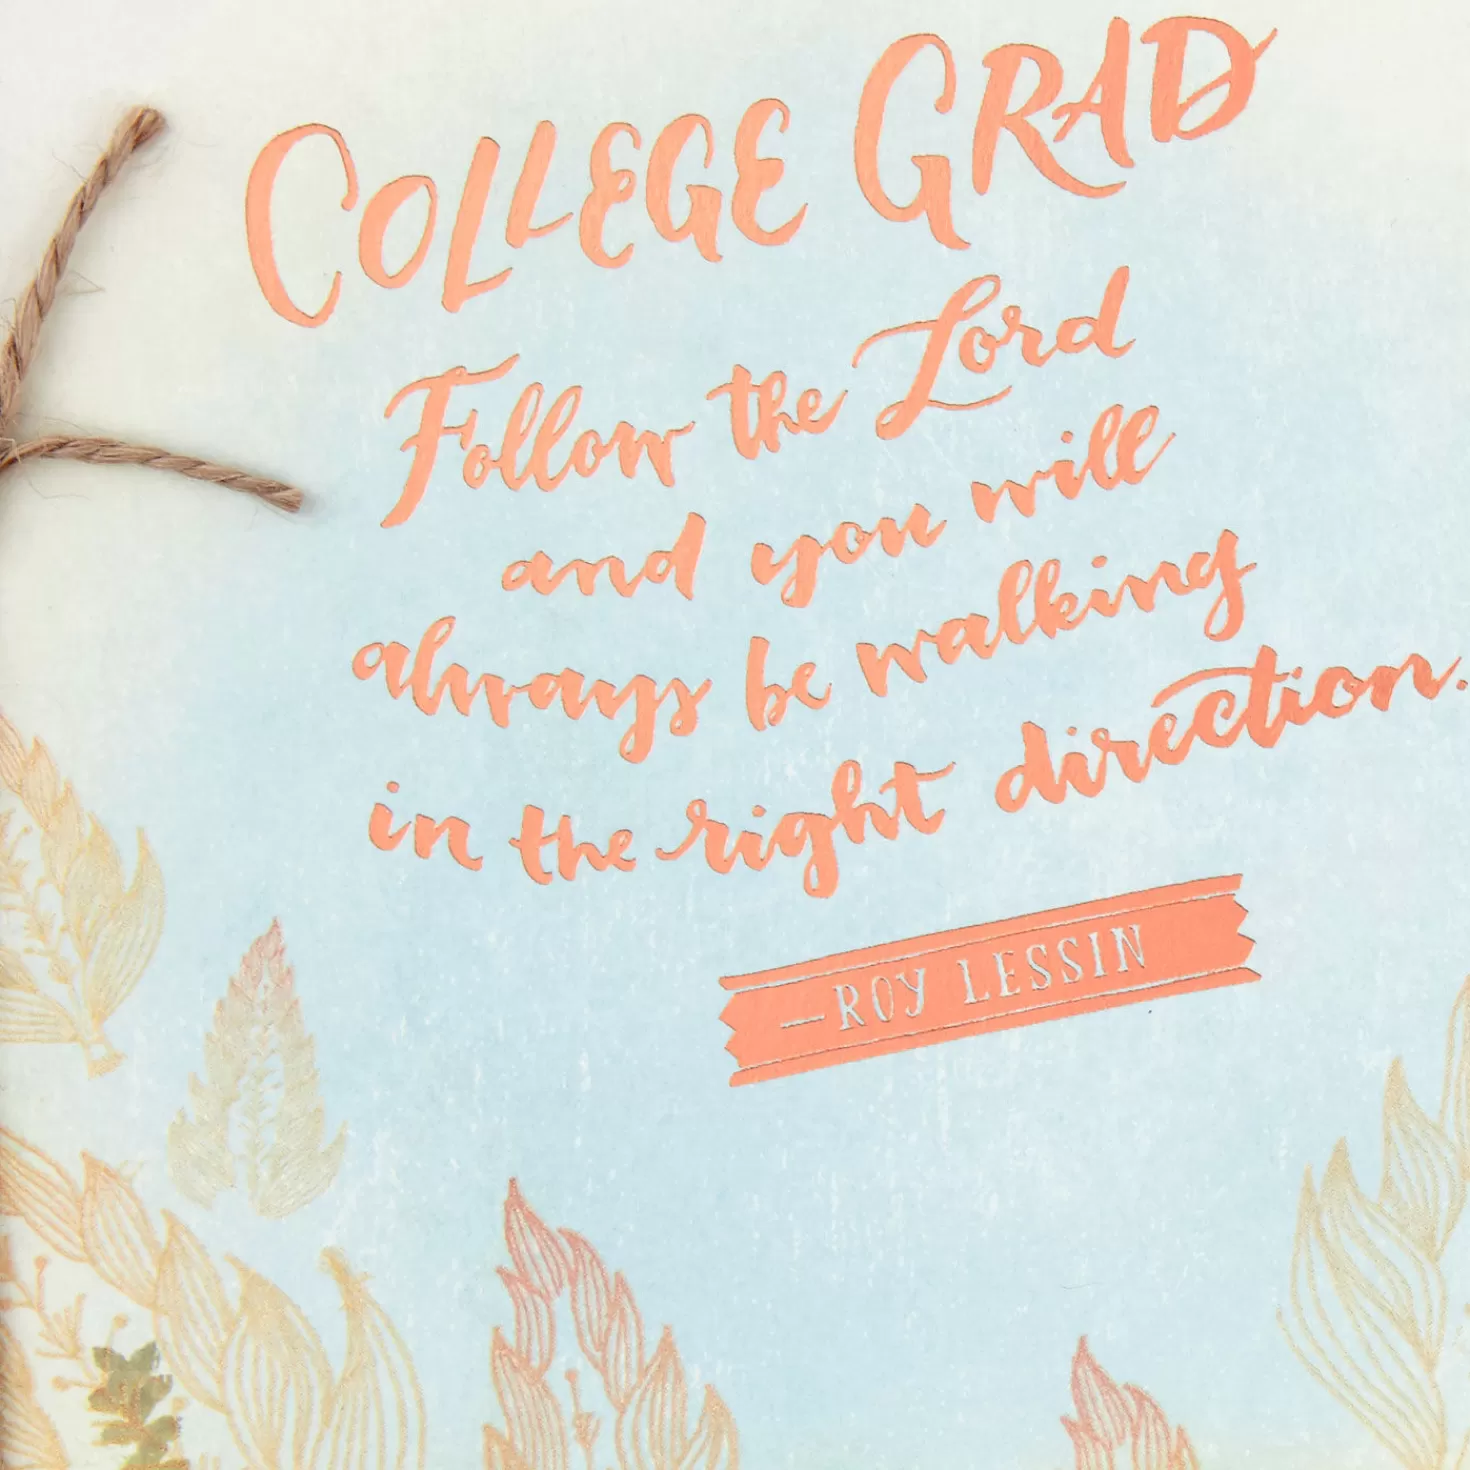 COLLEGE GRAD
Follow the Lord
and you will
always be walking
in the right direction.
—ROY LESSIN